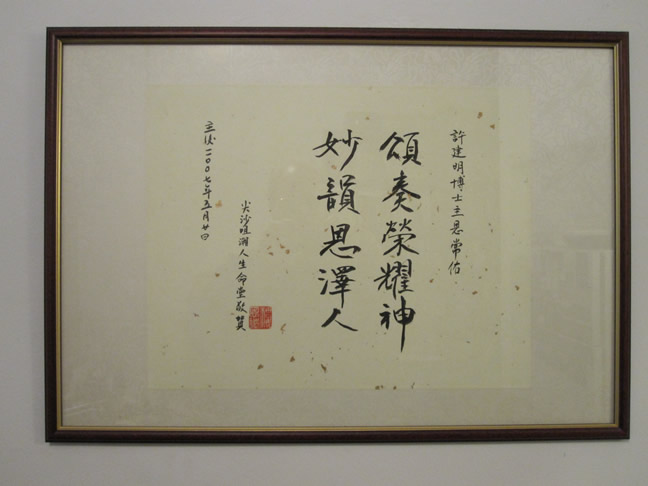 許建明博士主恩常佑
頌奏榮耀神
妙韻恩澤人
尖沙咀潮人生命堂敬贊
主後二00七年五月廿日